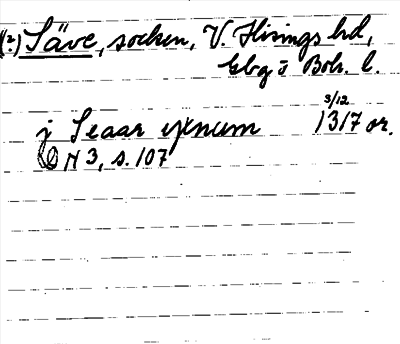 (?) Säve, socken, V. Hisings hd,
Gbg o Boh. l.
3/12
j Seaar sysnum 1317 or.
N 3, s. 107